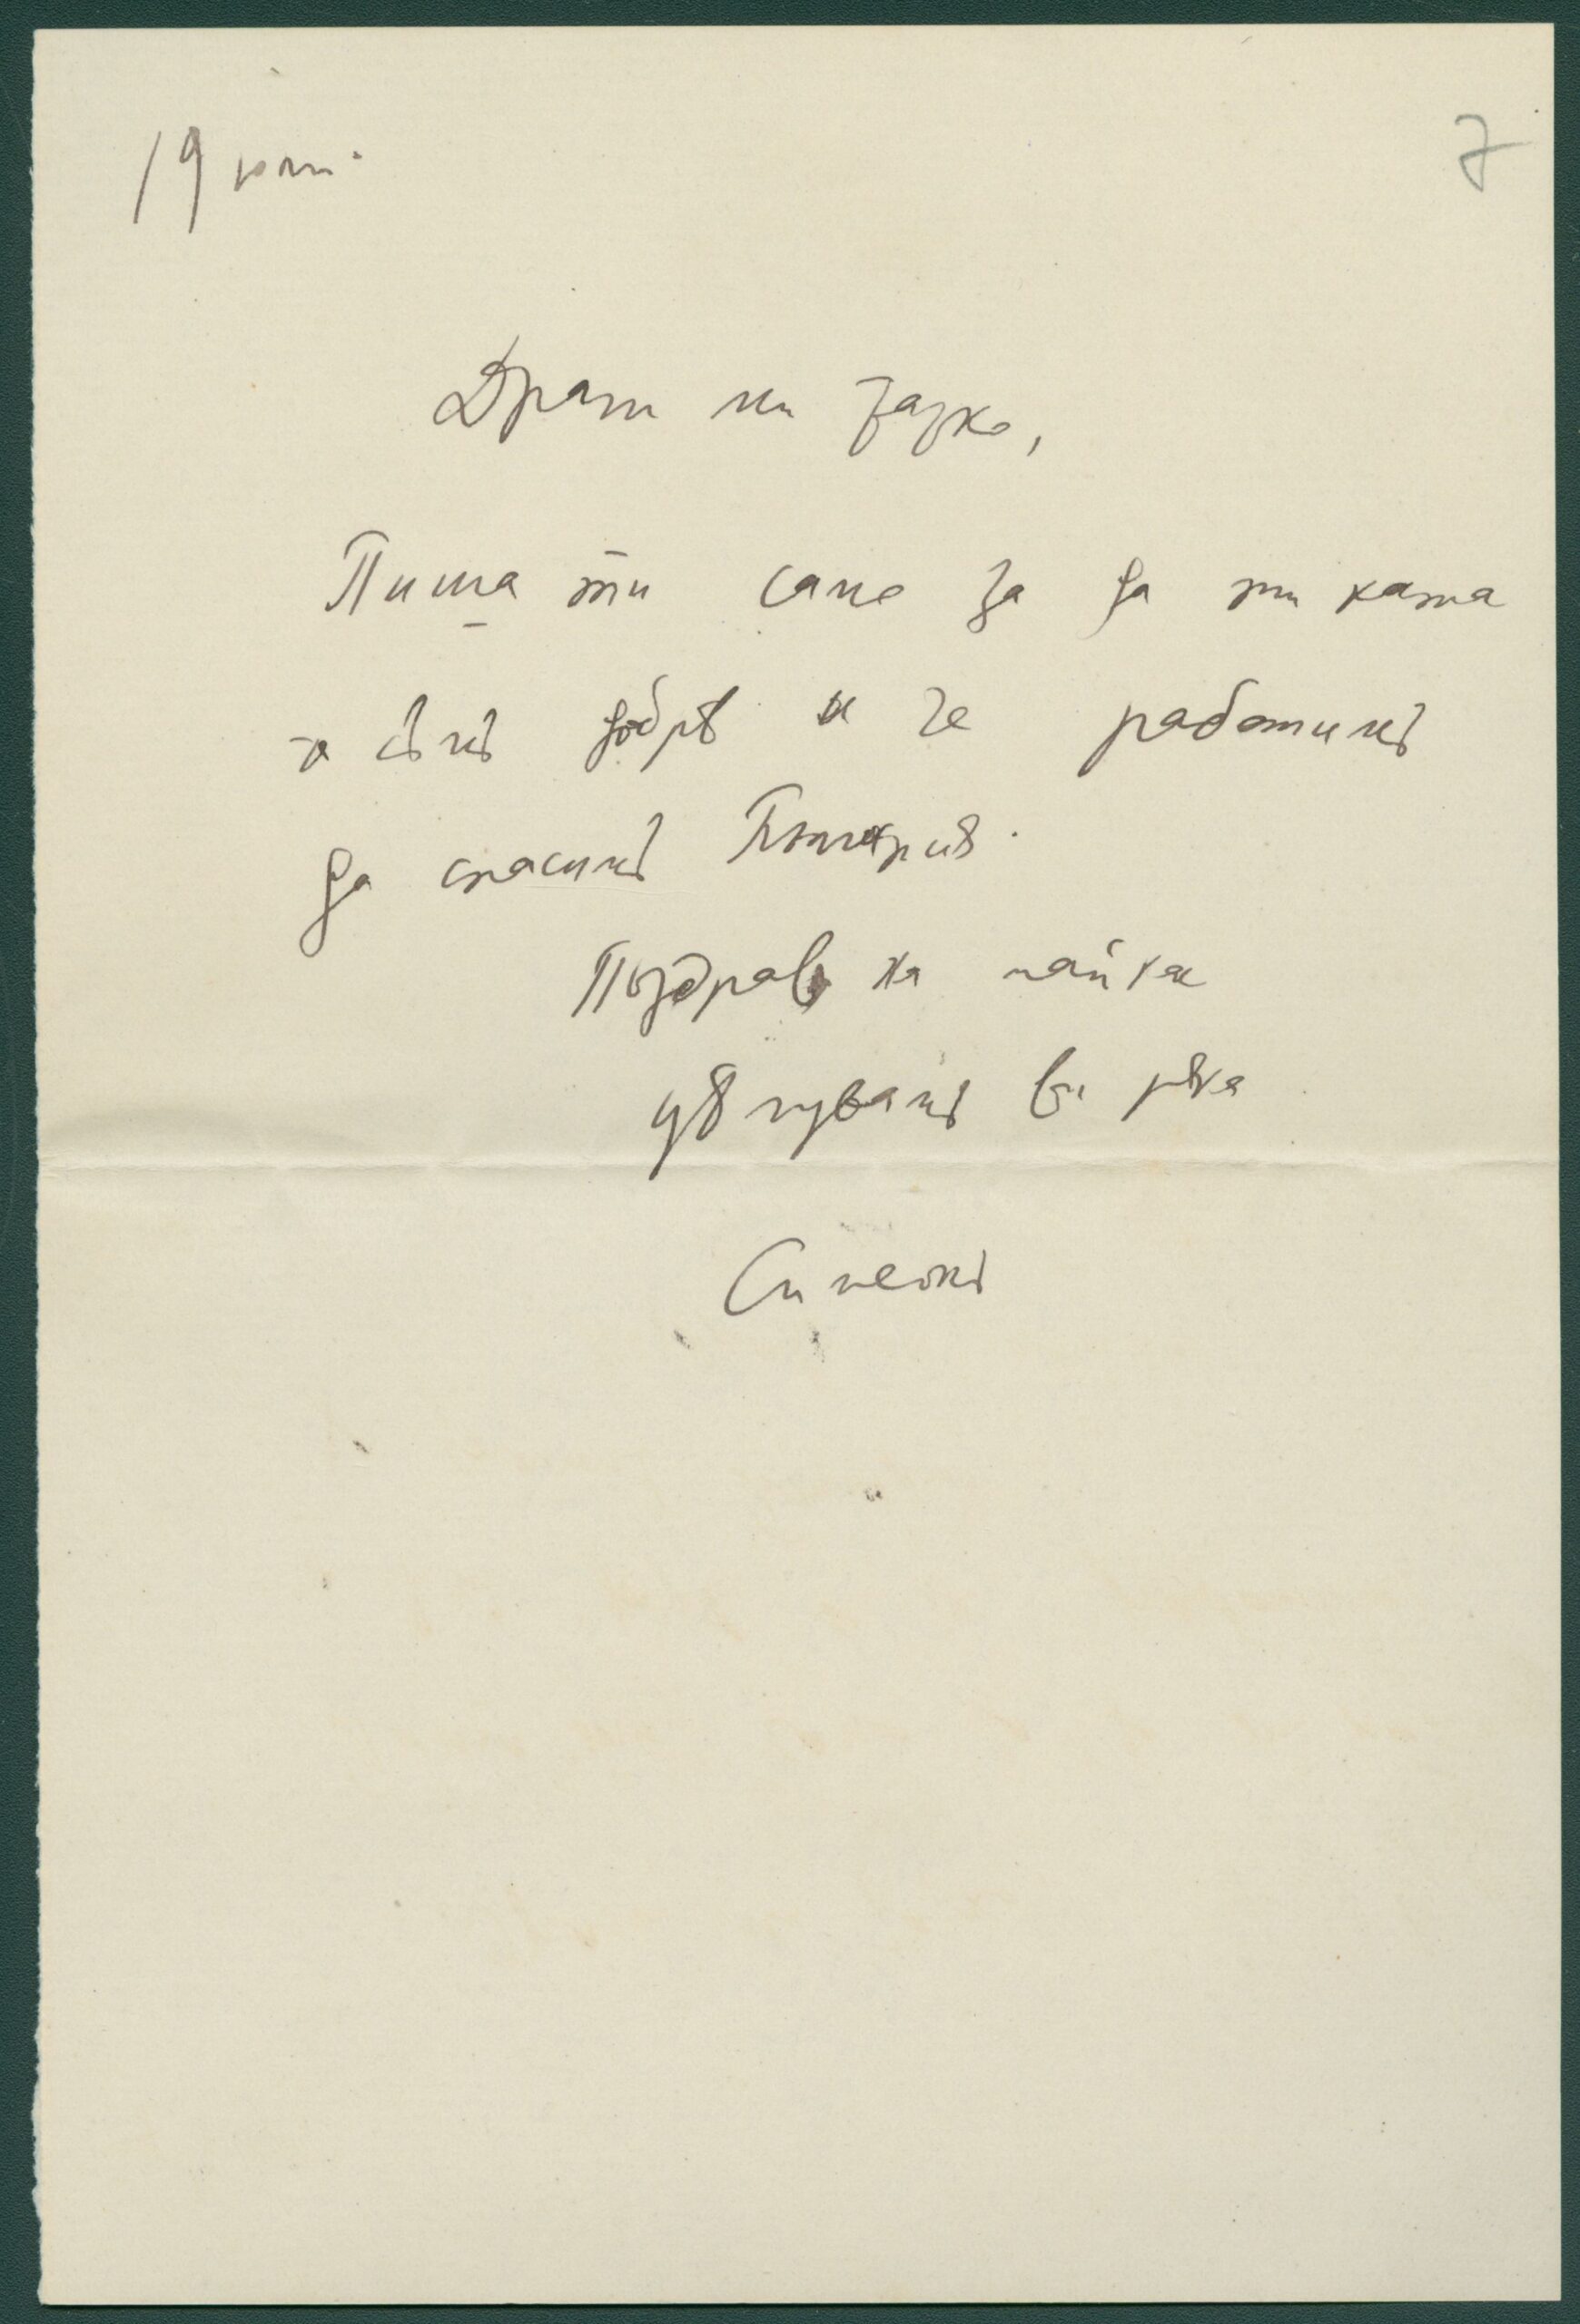 19 юли.
7
Драги ми
Пиша ти само за да ти кажа
че съмъ добрѣ и че работимъ
да спасимъ България.
Поздрав на майка
цѣлувамъ ви рѣка
Симеонъ